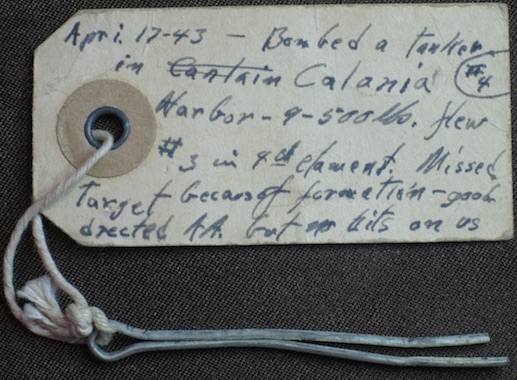 Apri. 17-43 – Bombed a tanker
in Cantain Calania #4
Harbor – 9-500 lbs. flew
#3 in 4th elament. Missed
Target because of formation – good
drected AA. but no hits on us